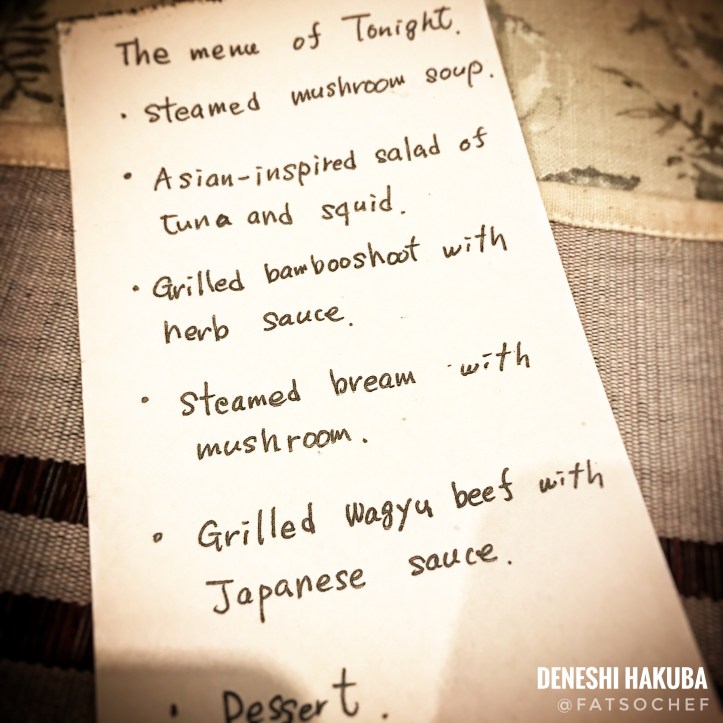 The menu of Tonight.
• steamed mushroom soup.
• Asian-inspired salad of
tuna and squid.
• Grilled bambooshoot with
herb sauce.
• steamed bream with
mushroom.
• Grilled wagyu beef with
Japanese sauce.
• Dessert.
DENESHI HAKUBA
@FATSOCHEF